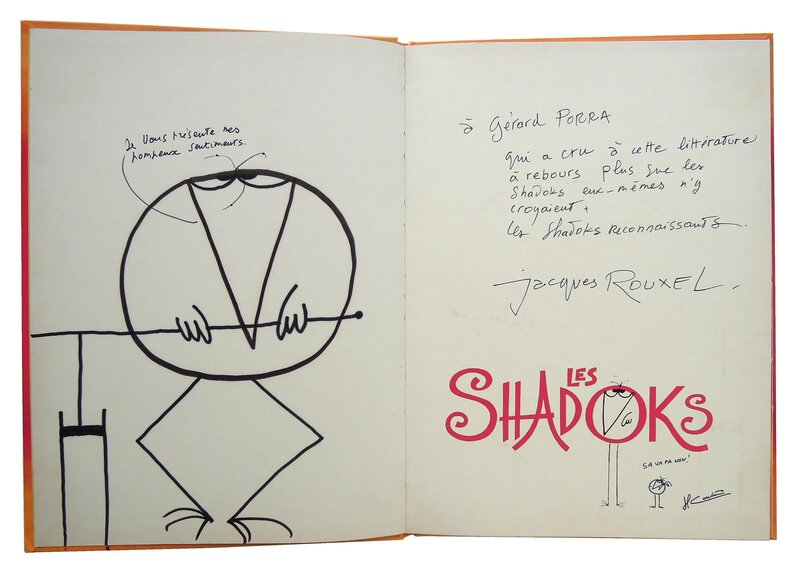 Je vous présente mes
pompeux sentiments.
à Gérard PORRA
qui a cru à cette littérature
à rebours plus que les
Shadoks eux-mêmes n'y
croyaient.
Les Shadoks reconnaissants.
Jacques ROUXEL.
LES
SHADOKS
SA VA PA NON!